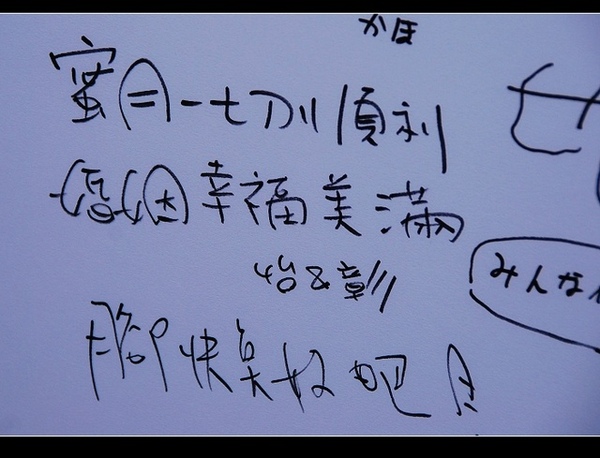 かほ
蜜月一切順利
婚姻幸福美滿
怡&彰
みんな
腳快奌好吧!